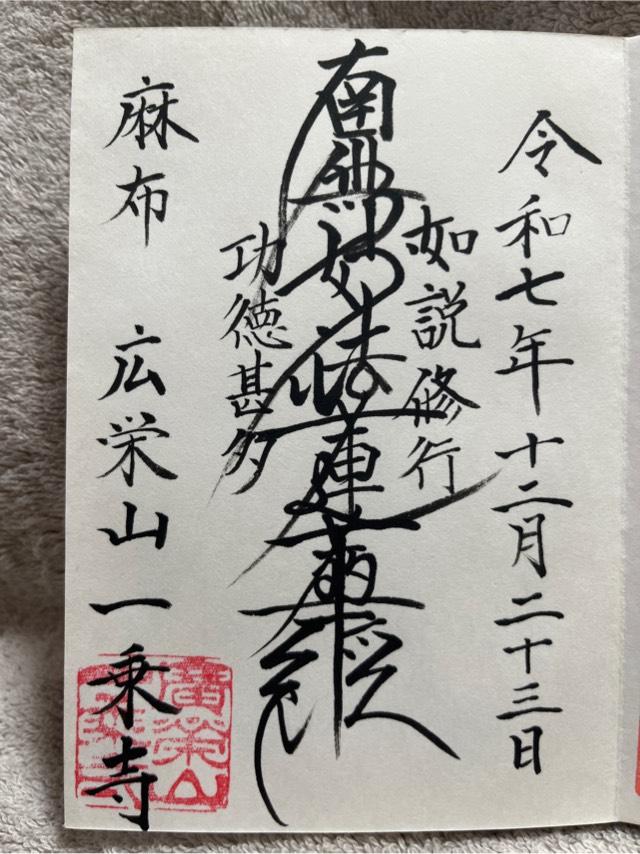 令和七年十二月二十三日
如説修行
南無妙法蓮華経
功徳甚多
麻布 広栄山一乗寺